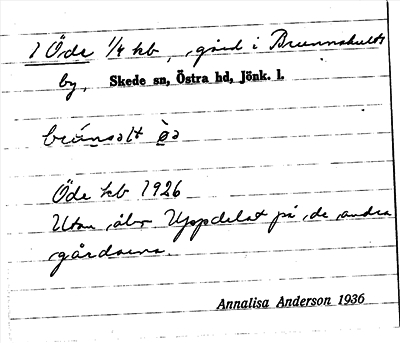 1 Öde 1/4 kb, gård i Brunnshults
by, Skede sn, Östra hd, Jönk. l.
Öde kb 1926
Utan åbr. Uppdelat på de andra
gårdarna.
Annalisa Anderson 1936